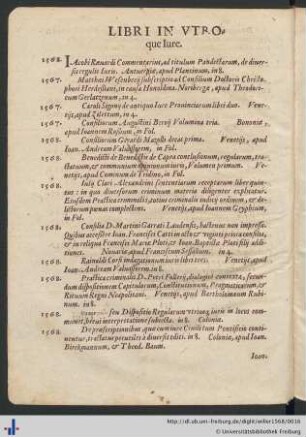 LIBRI IN VTRO-
que Iure.
1568. IAcobi Ræuardi Commentarius, ad titulum Pandectarum, de diuer-
sis regulis Iuris. Antuerpiæ, apud Plantinum, in 8.
1567. Matthei Wesenbecij subscriptio ad Consilium Doctoris Christo-
phori Herdesiani, in causa Noribergæ, apud Theodori-
cum Gerlatzenum, in 4.
1567. Caroli Sigonij de antiquo Iure Prouinciarum libri duo. Vene-
tijs, apud Zilettum, in 4.
1567. Consiliorum Augustini Beroij Volumina tria. Bononiæ,
apud Ioannem Rossium, in Fol.
1568. Consiliorum Gerardi Mazoli decas prima. Venetijs, apud
Ioan. Andream Valuassorem, in Fol.
1568. Benedicti de Benedictis de Capra conclusionum, regularum, tra-
ctatuum, & communium opinionum iuris, Volumen primum. Ve-
netijs, apud Cominum de Tridino, in Fol.
1568. Iulij Clari Alexandrini sententiarum receptarum liber quin-
tus: in quo diuersorum criminum materia diligenter explicatur.
Eiusdem Practica criminalis, totius criminalis iudicij ordinem, & de-
lictorum pœnas complectens. Venetijs, apud Ioannem Gryphium,
in Fol.
1568. Consilia D. Martini Garrati Laudensis, hactenus non impressa.
Quibus accessere Ioan. Francisci
& reliqua Francisci Mariæ Ploti, & Ioan. Baptistæ Ploti filij addi-
tiones. Nouariæ, apud Franciscum Sesallum, in
1568. Rainoldi Corsi indagationum iuris libri tres. Venetijs, apud
Ioan. Andream Valuassorem, in 8.
1568. Practica criminalis D. Petri Follerij, dialogicè contexta, secun-
dum dispositionem Capitulorum, Constitutionum, Pragmaticarum &
Rituum Regni Neapolitani. Venetijs, apud Bartholomæum Rubi-
num. in 8.
1568. seu Dispositio Regularum vtriusq; iuris in locos com-
munes, breui interpretatione subiecta. in 8. Coloniæ.
1568. De præscriptionibus, quæ cum iure Ciuili tum Pontificio conti-
nentur, tractatus per vtiles à diuersis editi. in 8. Coloniæ, apud Ioan.
Birckmannum, & Theod. Baum.
Ioan-
http://dl.ub.uni-freiburg.de/diglit/willer1568/0018
© Universitätsbibliothek Freiburg